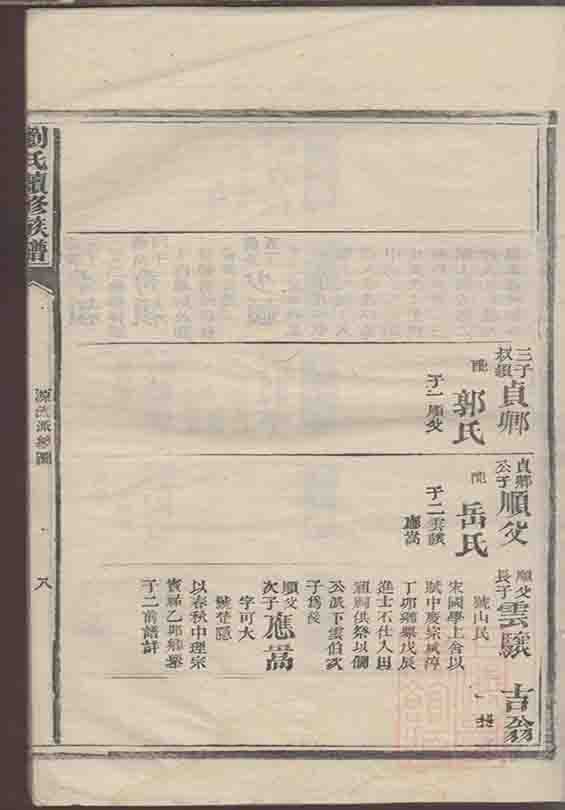 劉氏續修族譜
源流派總圖
八
三子
叔穎
貞卿
配
郭氏
子一順父
貞卿
公子
順父
配
岳氏
子二雲驥
應嵩
順父
長子
雲驥
吉翁
號山民
宋國學上舍以
賦中度宗咸淳
丁卯鄉舉戊辰
進士不仕入因
祠供祭以侗
公派下雲伯次
子爲後
順父
次子
應嵩
字可大
號楚隱
以春秋中理宗
寶祐乙卯鄉舉
子二前譜詳